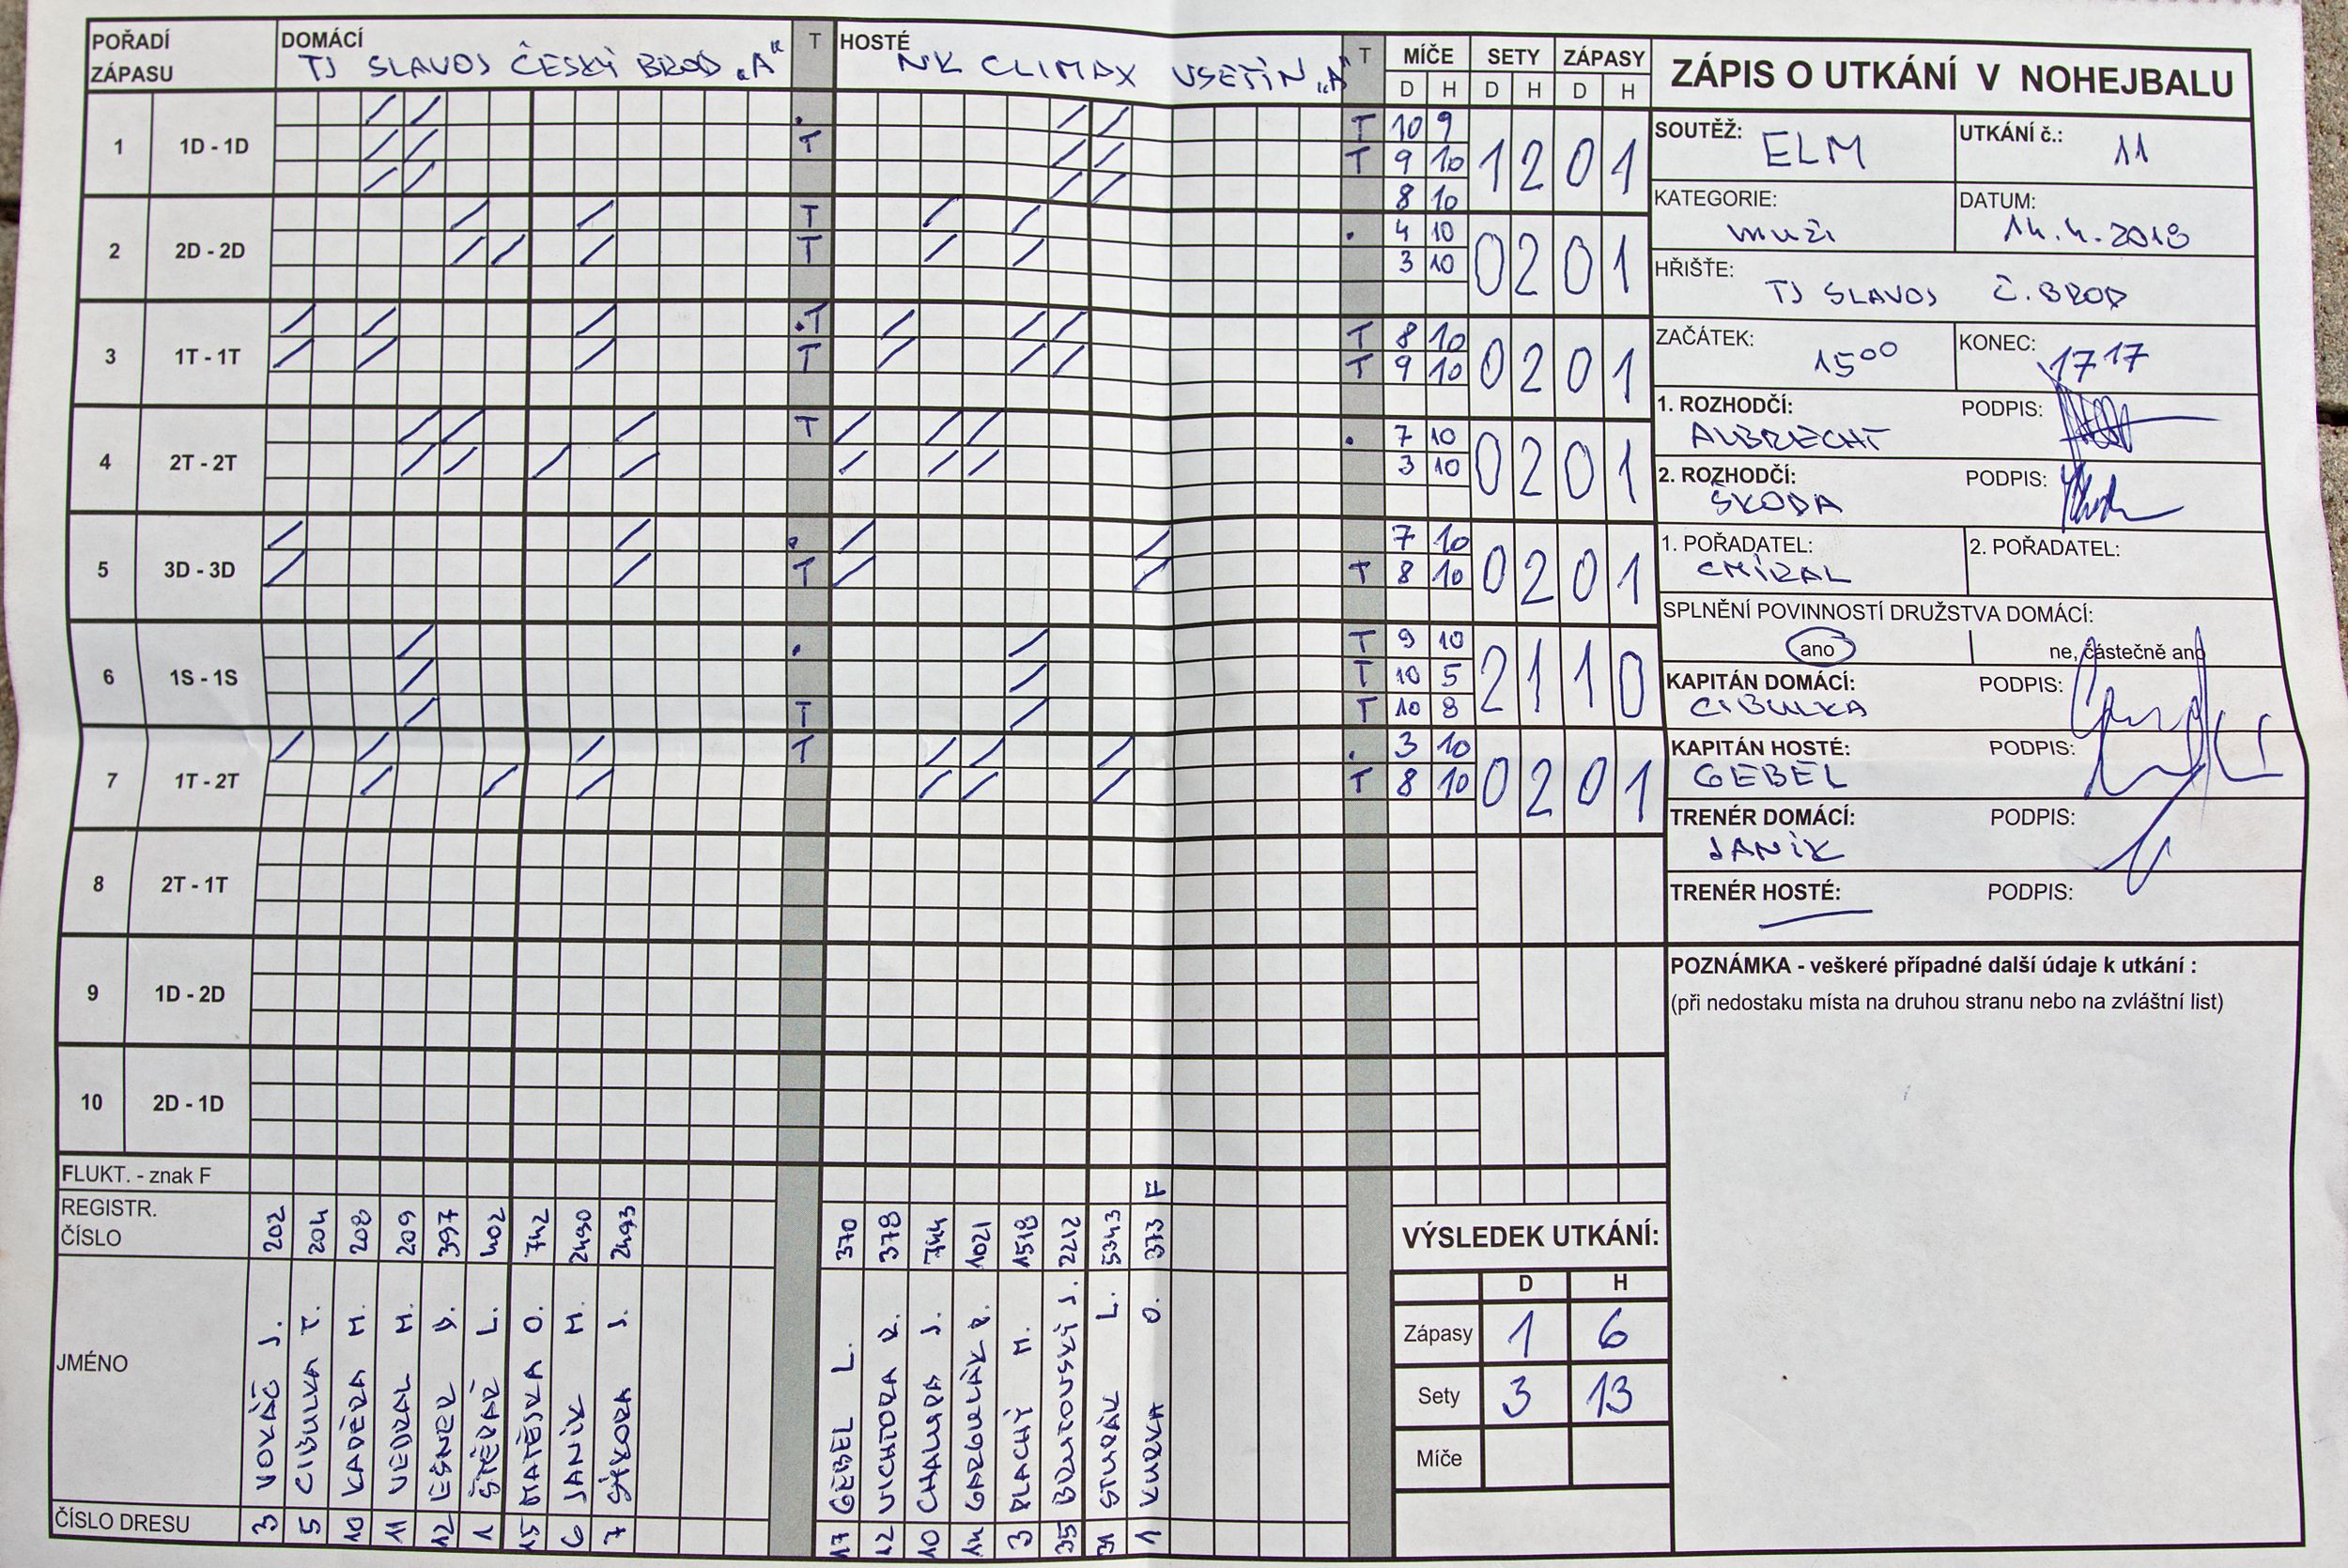 POŘADÍ ZÁPASU DOMÁCÍ TJ SLAVOJ ČESKÝ BROD „A“ T HOSTÉ NK CLIMAX VSETÍN „A“ T MÍČE SETY ZÁPASY
D H D H D H
ZÁPIS O UTKÁNÍ V NOHEJBALU
1 1D - 1D . T T T 10 9 9 10 8 10 1 2 0 1
2 2D - 2D T T . 4 10 3 10 0 2 0 1
3 1T - 1T .T T T T 8 10 9 10 0 2 0 1
4 2T - 2T T . 7 10 3 10 0 2 0 1
5 3D - 3D . T T 7 10 8 10 0 2 0 1
6 1S - 1S . T T T T 9 10 10 5 10 8 2 1 1 0
7 1T - 2T T . T 3 10 8 10 0 2 0 1
8 2T - 1T
9 1D - 2D
10 2D - 1D
SOUTĚŽ: ELM UTKÁNÍ č.: 11
KATEGORIE: muži DATUM: 14.4.2018
HŘIŠTE: TJ SLAVOJ Č. BROD
ZAČÁTEK: 15 00 KONEC: 17 17
1. ROZHODČÍ: ALBRECHT PODPIS:
2. ROZHODČÍ: ŠKODA PODPIS:
1. POŘADATEL: CMÍRAL 2. POŘADATEL:
SPLNĚNÍ POVINNOSTÍ DRUŽSTVA DOMÁCÍ:
ano ne, částečně ano
KAPITÁN DOMÁCÍ: CIBULKA PODPIS:
KAPITÁN HOSTÉ: GEBEL PODPIS:
TRENÉR DOMÁCÍ: JANÍK PODPIS:
TRENÉR HOSTÉ: PODPIS:
POZNÁMKA - veškeré případné další údaje k utkání :
(při nedostaku místa na druhou stranu nebo na zvláštní list)
FLUKT. - znak F F
REGISTR. ČÍSLO 202 204 208 209 397 402 742 2490 2493 370 378 744 1021 1518 2212 5343 373
JMÉNO NOVÁČ J. CIBULKA T. KADEŘA M. NEDBAL M. ESNER D. ŠTĚPÁN L. MATĚJKA O. JANÍK M. SÝKORA J. GEBEL L. VICHORA R. CHALUPA J. GARGULÁK R. PLACHÝ M. BRUTOVSKÝ J. STUPÁK L. KUDRA O.
ČÍSLO DRESU 3 5 10 11 12 1 15 6 7 17 12 10 14 3 35 31 1
VÝSLEDEK UTKÁNÍ:
D H
Zápasy 1 6
Sety 3 13
Míče